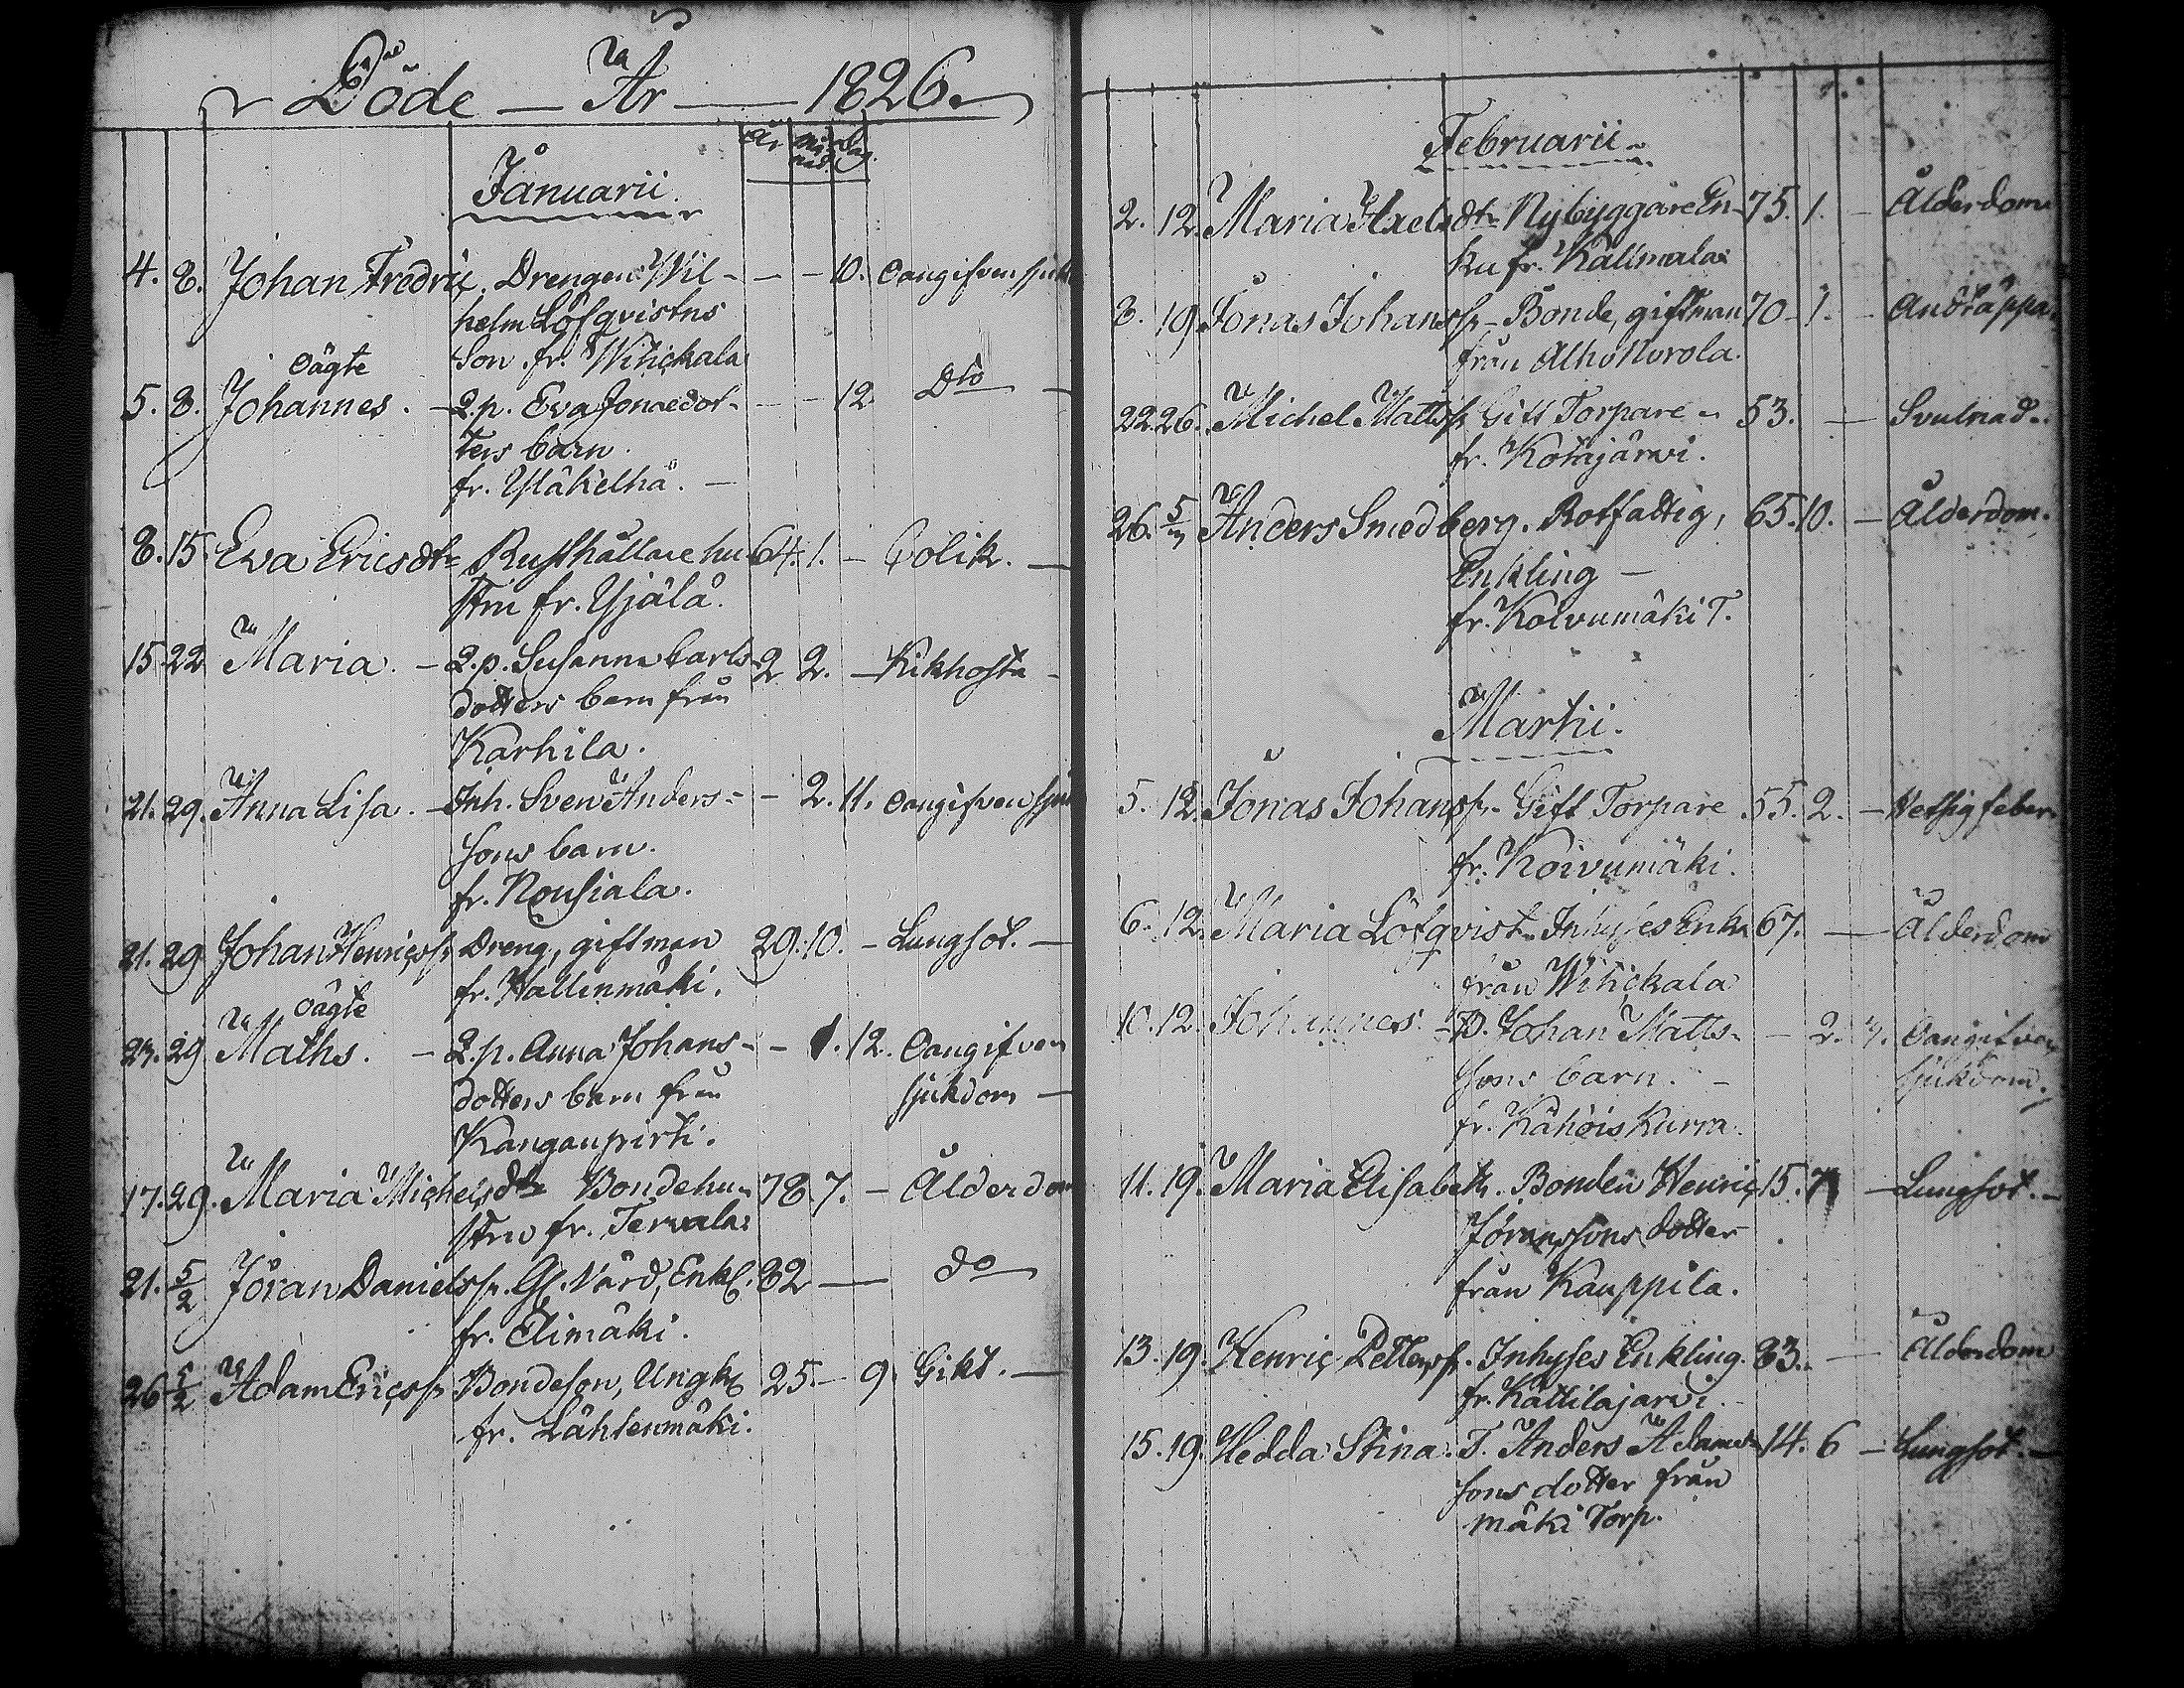 Döde — År — 1826.
År månad. dag.
Januarii.
4. 8. Johan Fredric. Drengen Wil- — — 10. Oangifven sjuk
helm Löfqvistns
Son fr. Wihickala
oägte
5. 8. Johannes. — Q.p. Eva Jonaedot- — — 12. Dto —
ters barn.
fr.
8. 15. Eva Ericsdtr Rusthållare hu- 64. 1. — Colik. —
stru fr. Yjälä.
15. 22 Maria. — Q.p. Susanna Carls- 2 2. — Kikhosta —
dotters barn från
Karhila.
21. 29. Anna Lisa. — Inh. Sven Anders- — 2. 11. Oangifven sju
sons barn.
fr. Nousiala.
21. 29 Johan Henricss. Dreng, giftman 29. 10. — Lungsot. —
fr. Hallenmäki.
oägte
23. 29 Maths. — Q.p. Anna Johans- — 1. 12. Oangifven
dotters barn från sjukdom —
Kanganpirti.
17. 29. Maria Michelsdtr Bondehu- 78 7. — Ålderdom
stru fr. Tervala.
21. 5/2 Jöran Danielss. Gl. Värd, Enkl. 82 — do
fr. Elimäki.
26 5/2 Adam Ericss. Bondeson, Ungk. 25. — 9. Gikt. —
fr. Lähtenmäki.
Februarii.
2. 12. Maria Axelsdtr Nybyggare En- 75. 1. — Ålderdom
ka fr. Kallmala
8. 19. Jonas Johanss. — Bonde, giftman 70 — 1. — Andtäppa.
från Alho Norola.
22. 26. Michel Mattss. Gift Torpare 53. — Svulnad.
fr. Kotajärvi.
26. 5/3 Anders Smedberg. Rotfattig, 65. 10. — Ålderdom.
Enkling —
fr. Koivumäki T.
Martii.
5. 12. Jonas Johanss. Gift Torpare 55. 2. — Hetsig feber.
fr. Koivumäki.
6. 12. Maria Löfqvist. Inhyses Enka 67. — Ålderdom
från Wihickala
10. 12. Johannes. — B. Johan Matts- — 2. 3. Oangifven
sons barn. — sjukdom.
fr. Kähöis Kurra.
11. 19. Maria Elisabeth. Bonden Henric 15. 7 — Lungsot. —
Jöranssons dotter
från Kauppila.
13. 19. Henric Petterss. Inhyses Enkling. 83. — Ålderdom
fr. Kattilajärvi.
15. 19. Hedda Stina. T. Anders Adams- 14. 6 — Lungsot. —
sons dotter från
mäki Torp.